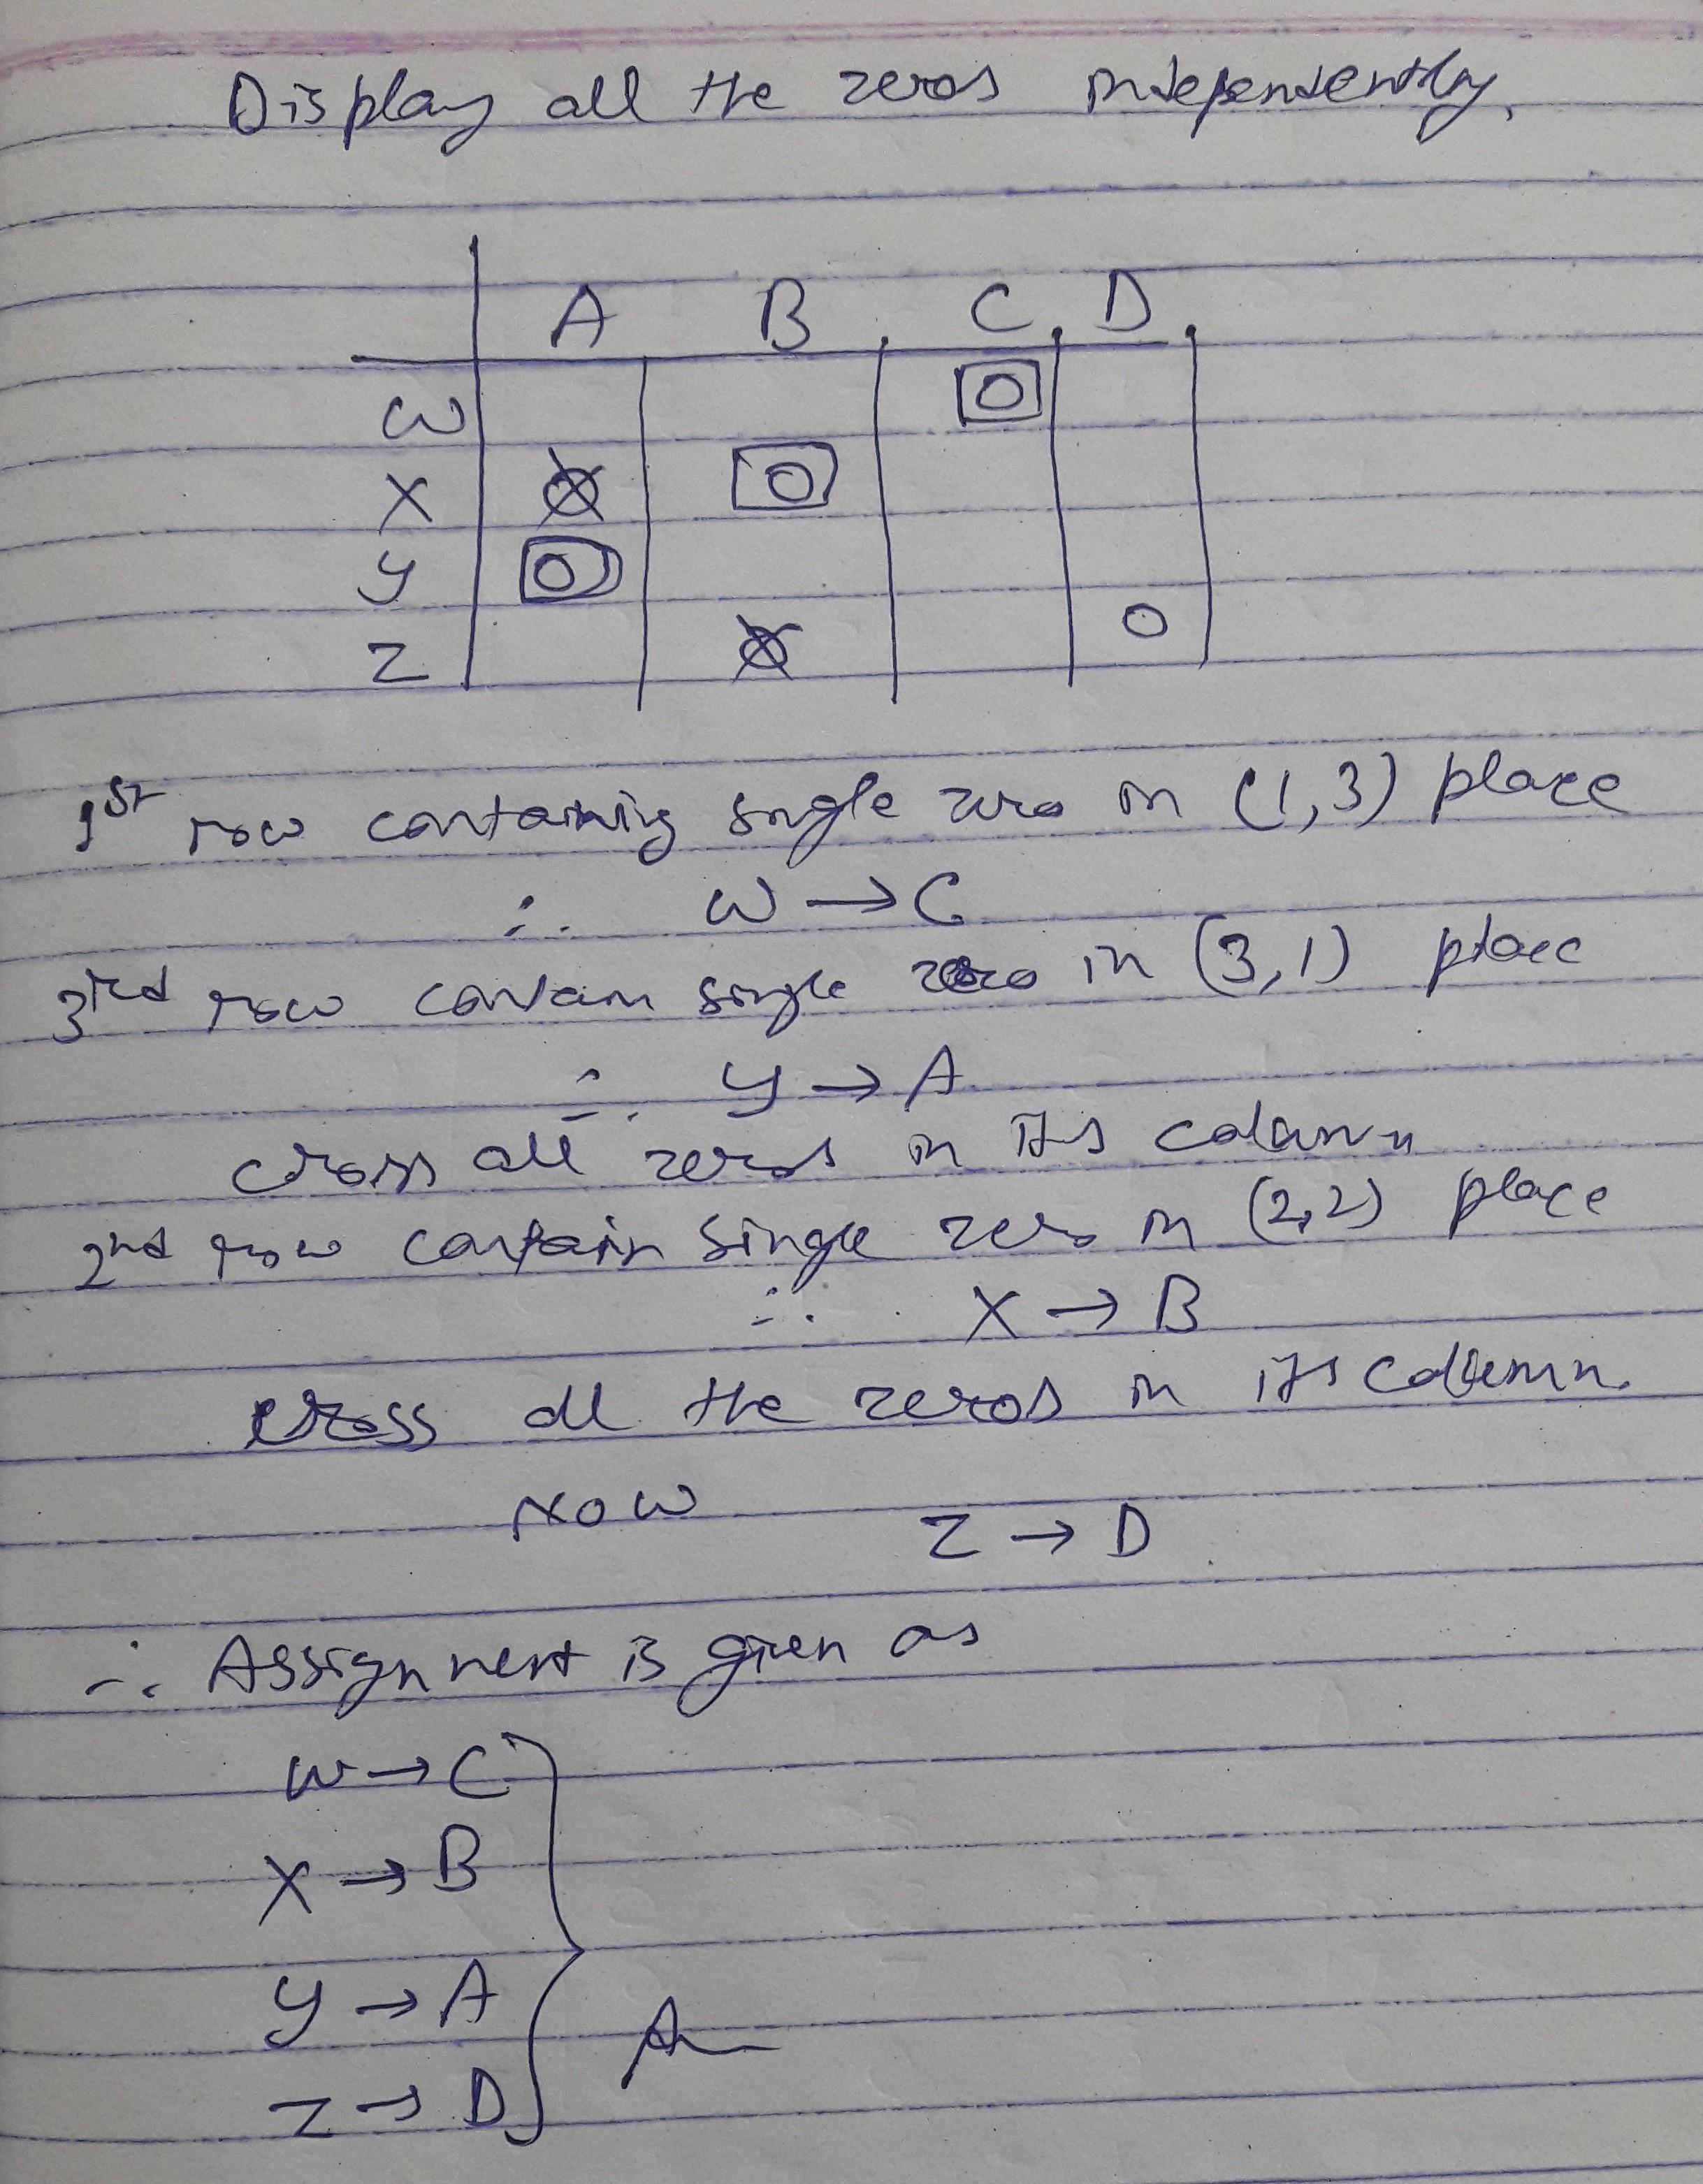 Display all the zeros independently,
A B C D
W 0
X 0 0
Y 0
Z 0 0
1st row containing single zero in (1,3) place
∴ W → C
3rd row contain single zero in (3,1) place
∴ Y → A
cross all zeros in its column
2nd row contain single zero in (2,2) place
∴ X → B
cross all the zeros in its column.
NOW Z → D
∴ Assignment is given as
W → C
X → B
Y → A
Z → D